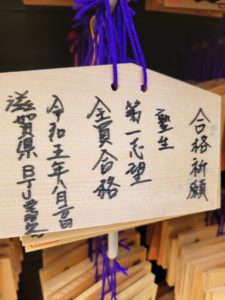 合格祈願
塾生
第一志望
全員合格
令和五年八月六日
滋賀県